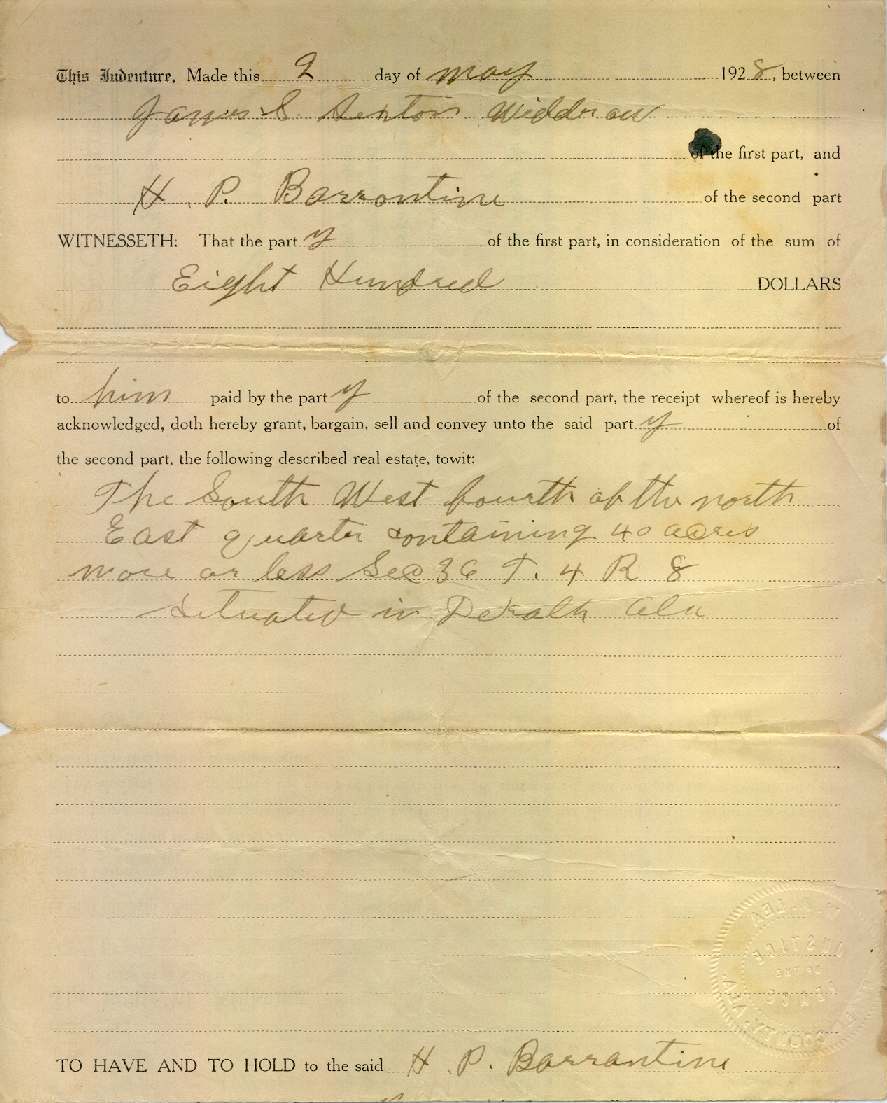 This Indenture, Made this 2 day of may 1928, between
James S Sexton Widdrow
of the first part, and
H. P. Barrontine of the second part
WITNESSETH: That the part y of the first part, in consideration of the sum of
Eight Hundred DOLLARS
to him paid by the part y of the second part, the receipt whereof is hereby
acknowledged, doth hereby grant, bargain, sell and convey unto the said part y of
the second part, the following described real estate, towit:
The South West fourth of the north
East quarter containing 40 acres
more or less Sec 36 T. 4 R 8
situated in Dekalb Ala
TO HAVE AND TO HOLD to the said H. P. Barrantine